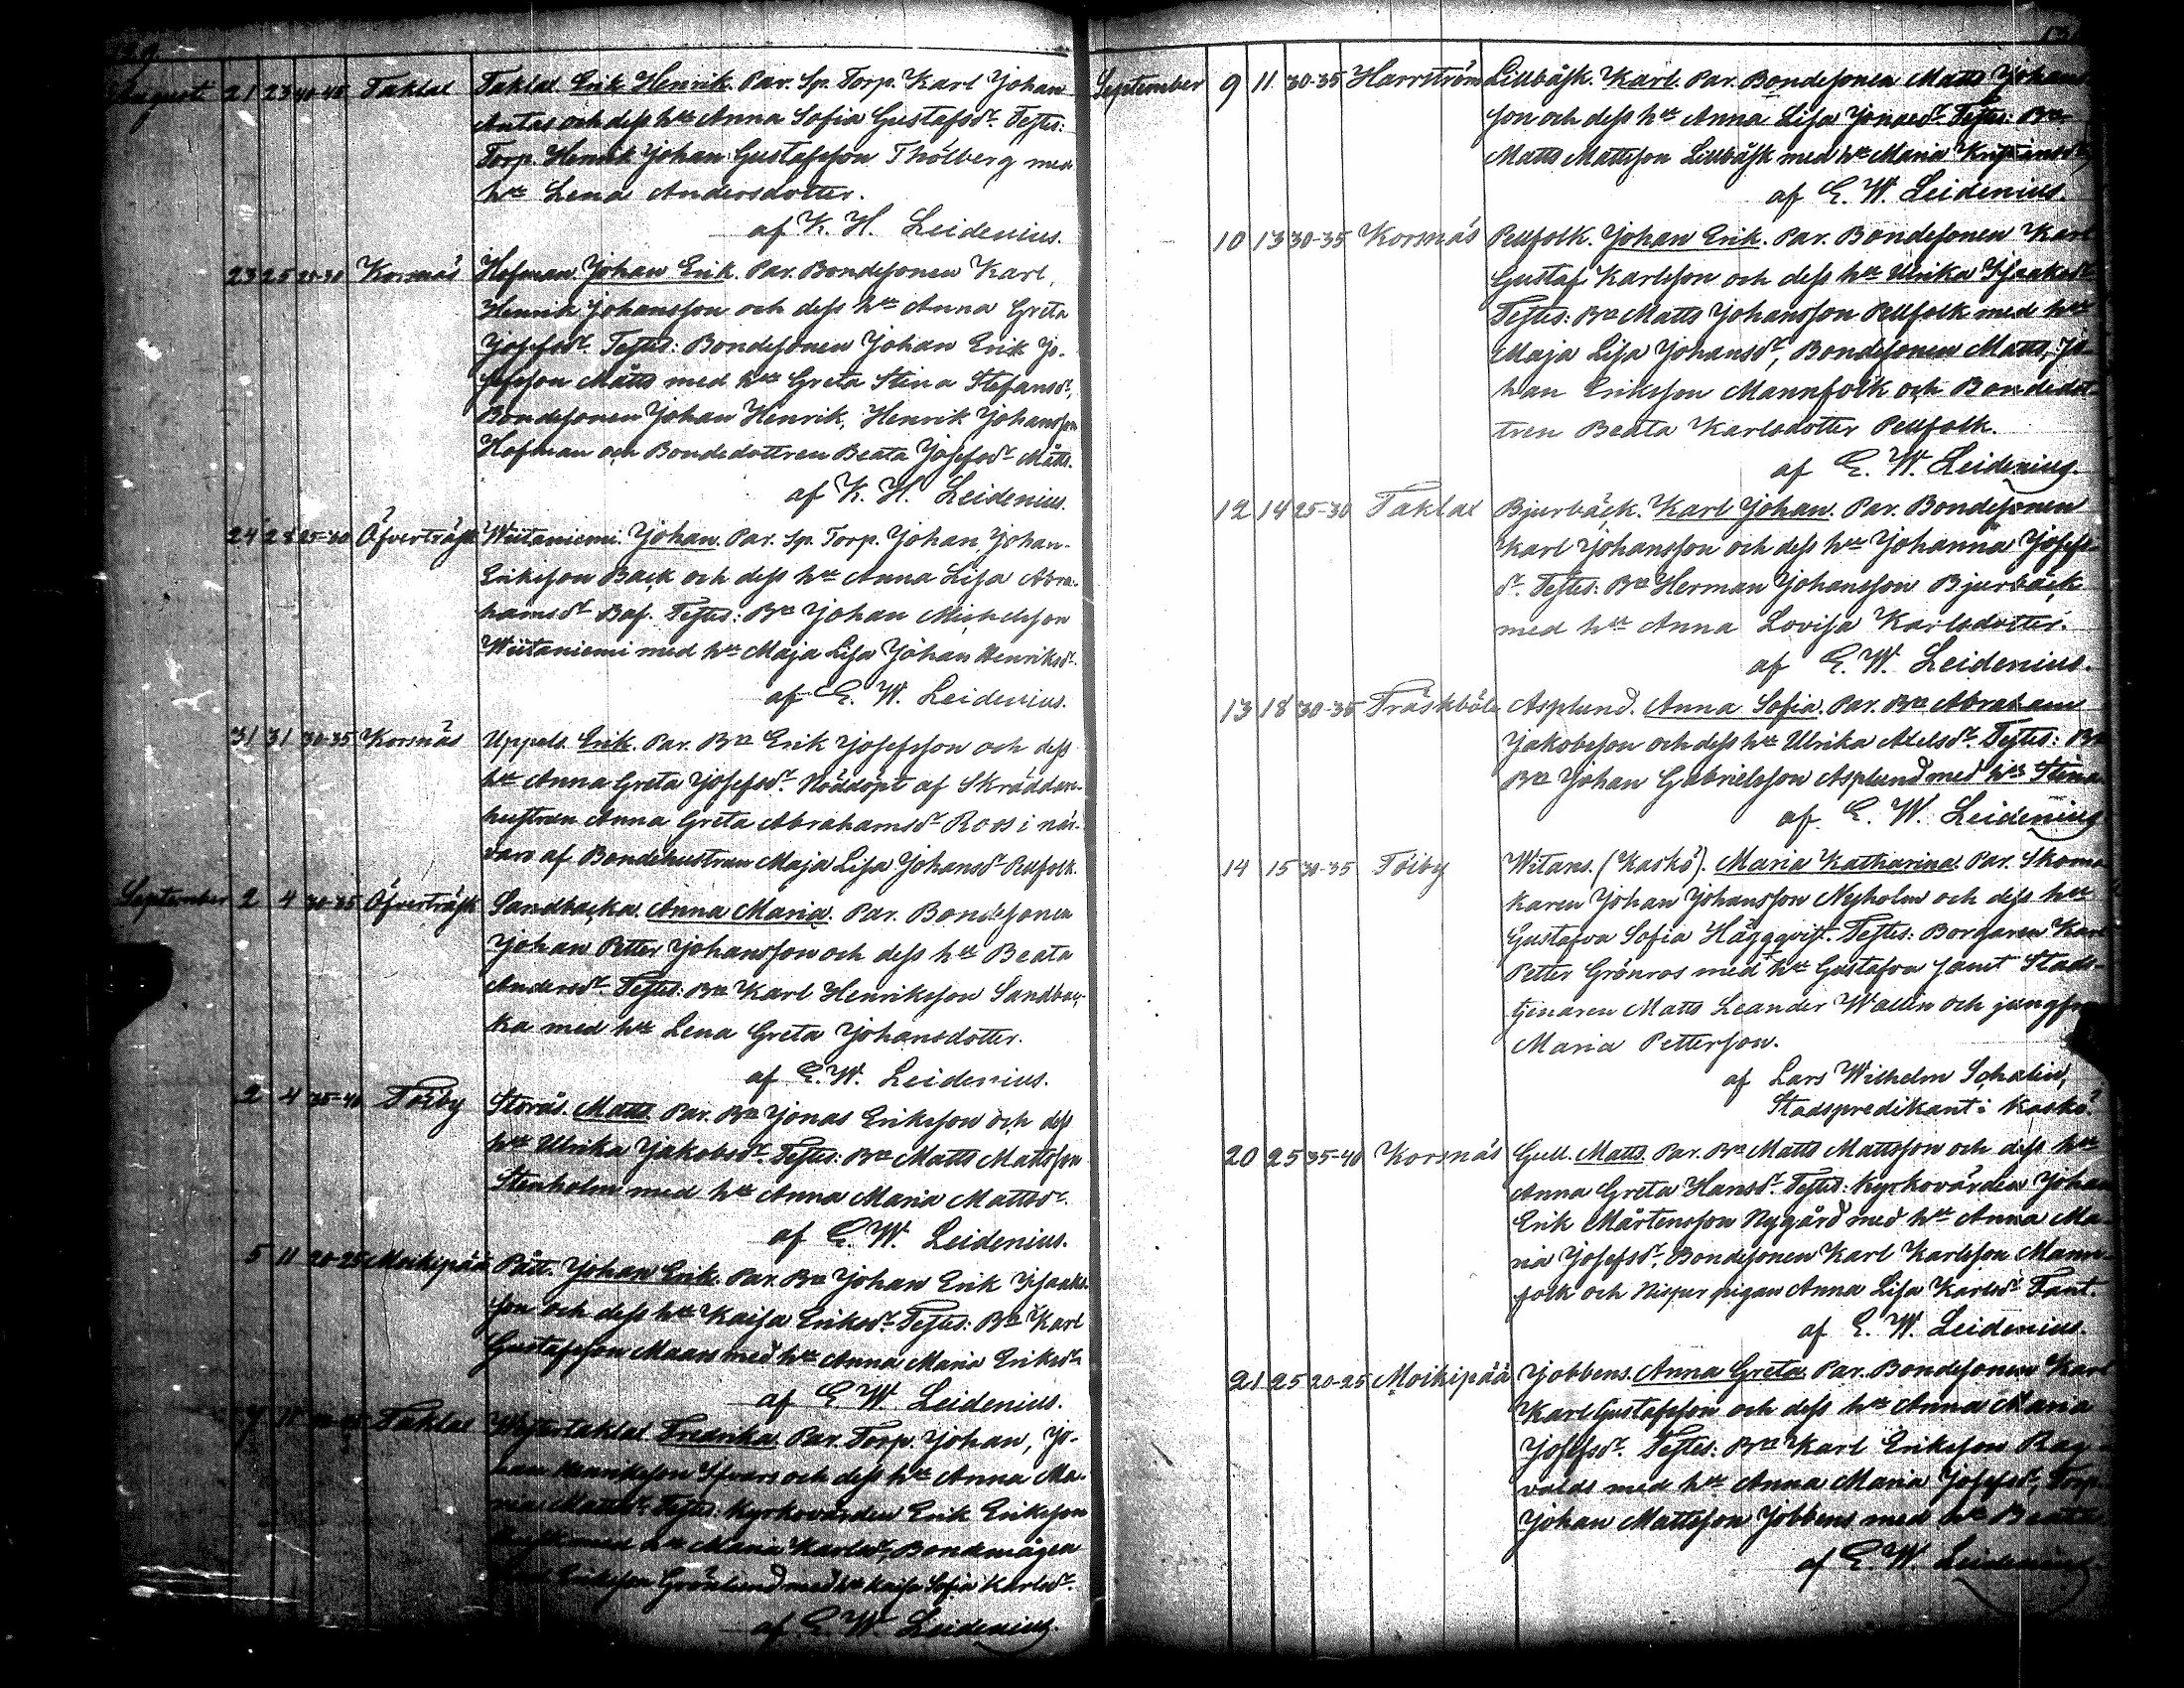 August 21 23 40-45 Taklax Taklax. Erik Henrik. Par. Sp. Torp. Karl Johan
Antas och dess hu Anna Sofia Gustafsdr. Testes:
Torp. Henrik Johan Gustafsson Thölberg med
hu Lena Andersdotter.
af K. H. Leidenius.
23 25 25-30 Korsnäs Hofman. Johan Erik. Par. Bondesonen Karl
Henrik Johansson och dess hu Anna Greta
Josefsdr. Testes: Bondesonen Johan Erik Jo-
sefsson Mätts med hu Greta Stina Stefansdr,
Bondesonen Johan Henrik, Henrik Johansson
Hofman och Bondedottren Beata Josefsdr Mätts.
af K. H. Leidenius.
24 28 25-30 Öfverträsk Wiitaniemi. Johan. Par. Sp. Torp. Johan, Johan-
Eriksson Back och dess hu Anna Lisa Abra-
hamsdr Testes: Bn Johan Michelsson
Wiitaniemi med hu Maja Lisa Johan Henriksdr.
af E. W. Leidenius.
31 31 30-35 Korsnäs Uppels. Erik. Par. Bn Erik Josefsson och dess
hu Anna Greta Josefsdr. Nöddöpt af Skräddare-
hustrun Anna Greta Abrahamsdr Roos i när-
varo af Bondehustrun Maja Lisa Johansdr Pellfolk.
September 2 4 30-35 Öfverträsk Sandbacka. Anna Maria. Par. Bondesonen
Johan Petter Johansson och dess hu Beata
Andersdr. Testes: Bn Karl Henriksson Sandbac-
ka med hu Lena Greta Johansdotter.
af E. W. Leidenius.
2 4 35-40 Töiby Storås. Matts. Par. Bn Jonas Eriksson och dess
hu Ulrika Jakobsdr. Testes: Bn Matts Mattsson
Stenholm med hu Anna Maria Mattsdr.
af E. W. Leidenius.
5 11 20-25 Moikipää Pått. Johan Erik. Par. Bn Johan Erik Isaaks-
son och dess hu Kaisa Eriksdr. Testes: Bn Karl
Gustafsson Maars med hu Anna Maria Eriksdr
af E. W. Leidenius.
Taklax Westertaklax Fredrika. Par. Torp. Johan, Jo-
han Henriksson Ifvars och dess hu Anna Ma-
ria Mattsdr. Testes: Kyrkovärden Erik Eriksson
med hu Maria Karlsdr, Bondemågen
Eriksson Grönlund med hu Kaisa Sofia Karlsdr.
af E. W. Leidenius.
September 9 11 30-35 Harrström Lillbåsk. Karl. Par. Bondesonen Matts Johans-
son och dess hu Anna Lisa Jonasdr. Testes: Bn
Matts Mattsson Lillbåsk med hu Maria
af E. W. Leidenius.
10 13 30-35 Korsnäs Pellfolk. Johan Erik. Par. Bondesonen Karl
Gustaf Karlsson och dess hu Ulrika Isaaksdr
Testes: Bn Matts Johansson Pellfolk med hu
Maja Lisa Johansdr, Bondesonen Matts, Jo-
han Eriksson Mannfolk och Bondedot-
tren Beata Karlsdotter Pellfolk.
af E. W. Leidenius.
12 14 25-30 Taklax Bjurbäck. Karl Johan. Par. Bondesonen
Karl Johansson och dess hu Johanna Josefs-
dr. Testes: Bn Herman Johansson Bjurbäck
med hu Anna Lovisa Karlsdotter.
af E. W. Leidenius.
13 18 30-35 Träskböle Asplund. Anna Sofia. Par. Bn Abraham
Jakobsson och dess hu Ulrika Axelsdr. Testes: Bn
Bn Johan Gabrielsson Asplund med hu Stina
af E. W. Leidenius
14 15 30-35 Töiby Witans. (Kaskö). Maria Katharina. Par. Skoma-
karen Johan Johansson Nyholm och dess hu
Gustafva Sofia Häggqvist. Testes: Borgaren Karl
Petter Grönros med hu Gustafva samt Stads-
tjenaren Matts Leander Wallin och jungfru
Maria Pettersson.
af Lars Wilhelm Schalin,
Stadspredikant i Kaskö.
20 25 35-40 Korsnäs Gull. Matts. Par. Bn Matts Mattsson och dess hu
Anna Greta Hansdr. Testes: Kyrkovärden Johan
Erik Mårtensson Nygård med hu Anna Ma-
ria Josefsdr, Bondesonen Karl Karlsson Mann-
folk och pigan Anna Lisa Karlsdr Fant.
af E. W. Leidenius.
21 25 20-25 Moikipää Jobbens. Anna Greta. Par. Bondesonen Karl
Karl Gustafsson och dess hu Anna Maria
Josefsdr. Testes: Bn Karl Eriksson Rag-
valds med hu Anna Maria Josefsdr, Torp.
Johan Mattsson Jobbens med hu Beata
af E. W. Leidenius